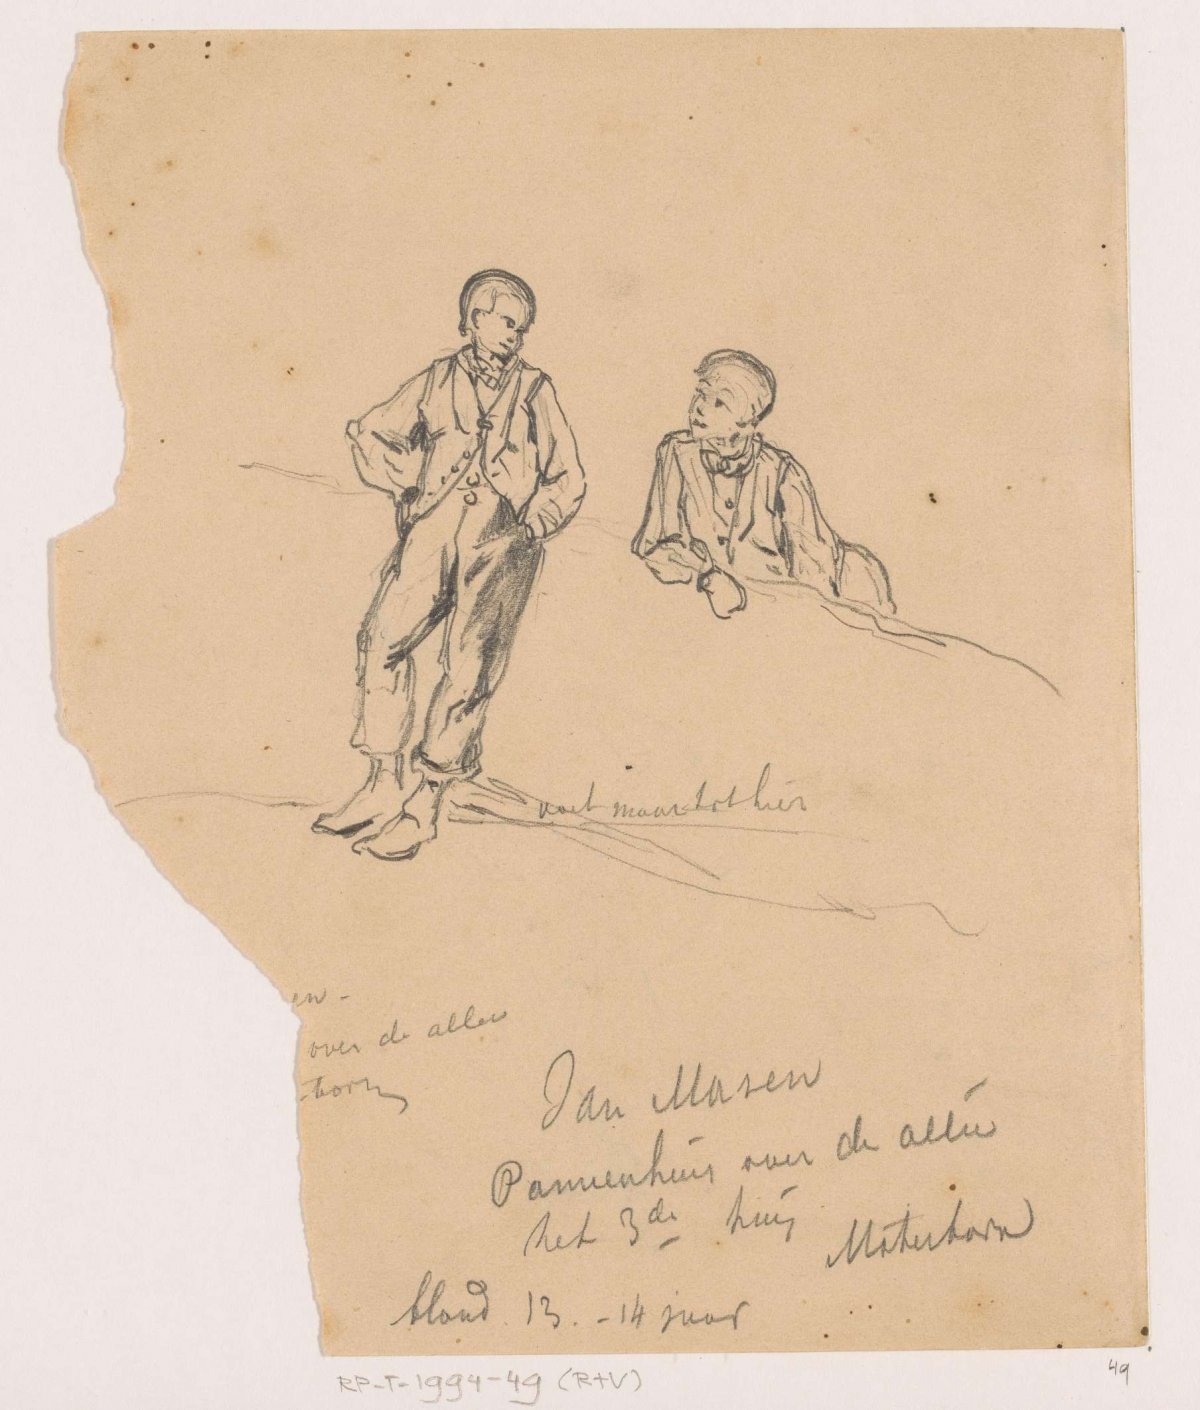 voet maar tot hier
en -
over de allee
-born
Jan Masen
Pannenhuis over de allée
het 3de huis
Materborn
blond 13. - 14 jaar
RP-T-1994-49 (R+V)
49